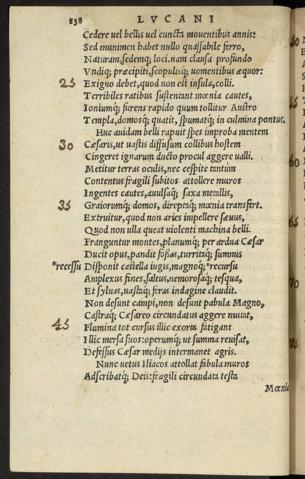 138 LVCANI
Cedere uel bellis uel cunctа mouentibus annis:
Sed munimen habet nullo quassabile ferro,
Naturam, sedemq; loci. nam clausa profundo
Vndiq; præcipiti, scopulisq; uomentibus æquor:
25 Exiguo debet, quod non est insula, colli.
Terribiles ratibus sustentant mœnia cautes,
Ioniumq; furens rapido quum tollitur Austro
Templa, domosq; quatit, spumatq; in culmina pontus.
Huc auidam belli rapuit spes improba mentem
30 Cæsaris, ut uastis diffusum collibus hostem
Cingeret ignarum ducto procul aggere ualli.
Metitur terras oculis, nec cespite tantum
Contentus fragili subitos attollere muros
Ingentes cautes, auulsaq; saxa metallis,
35 Graiorumq; domos, direptaq; mœnia transfert.
Extruitur, quod non aries impellere sæuus,
Quod non ulla queat uiolenti machina belli.
Franguntur montes, planumq; per ardua Cæsar
Ducit opus, pandit fossas, turritaq; summis
*recessu Disponit castella iugis, magnoq; *recursu
Amplexus fines, saltus, nemorosaq; tesqua,
Et syluas, uastaq; feras indagine claudit.
Non desunt campi, non desunt pabula Magno,
Castraq; Cæsareo circundatus aggere mutat,
45 Flumina tot cursus illic exorta fatigant
Illic mersa suos: operumq; ut summa reuisat,
Defessus Cæsar medijs intermanet agris.
Nunc uetus Iliacos attollat fabula muros
Adscribatq; Deis: fragili circundata testa
Mœnia